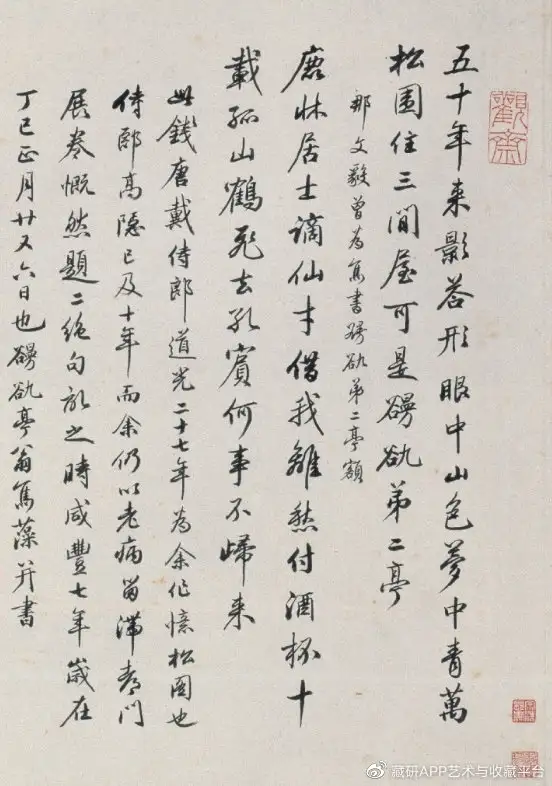 五十年来影答形眼中山色夢中青萬
松圍住三間屋可是䜱䜪第二亭
那文毅曾為寯書䜱䜪第二亭額
鹿牀居士謫仙才借我離愁付酒杯十
載孤山鶴飛去孔賓何事不歸来
此錢唐戴侍郎道光二十七年為余作憶松圖也
侍郎高隱已及十年而余仍以老病留滯都門
展卷慨然題二絶句訊之時咸豐七年歲在
丁巳正月廿又六日也䜱䜪亭翁寯藻并書
觀齋
藏研APP艺术与收藏平台